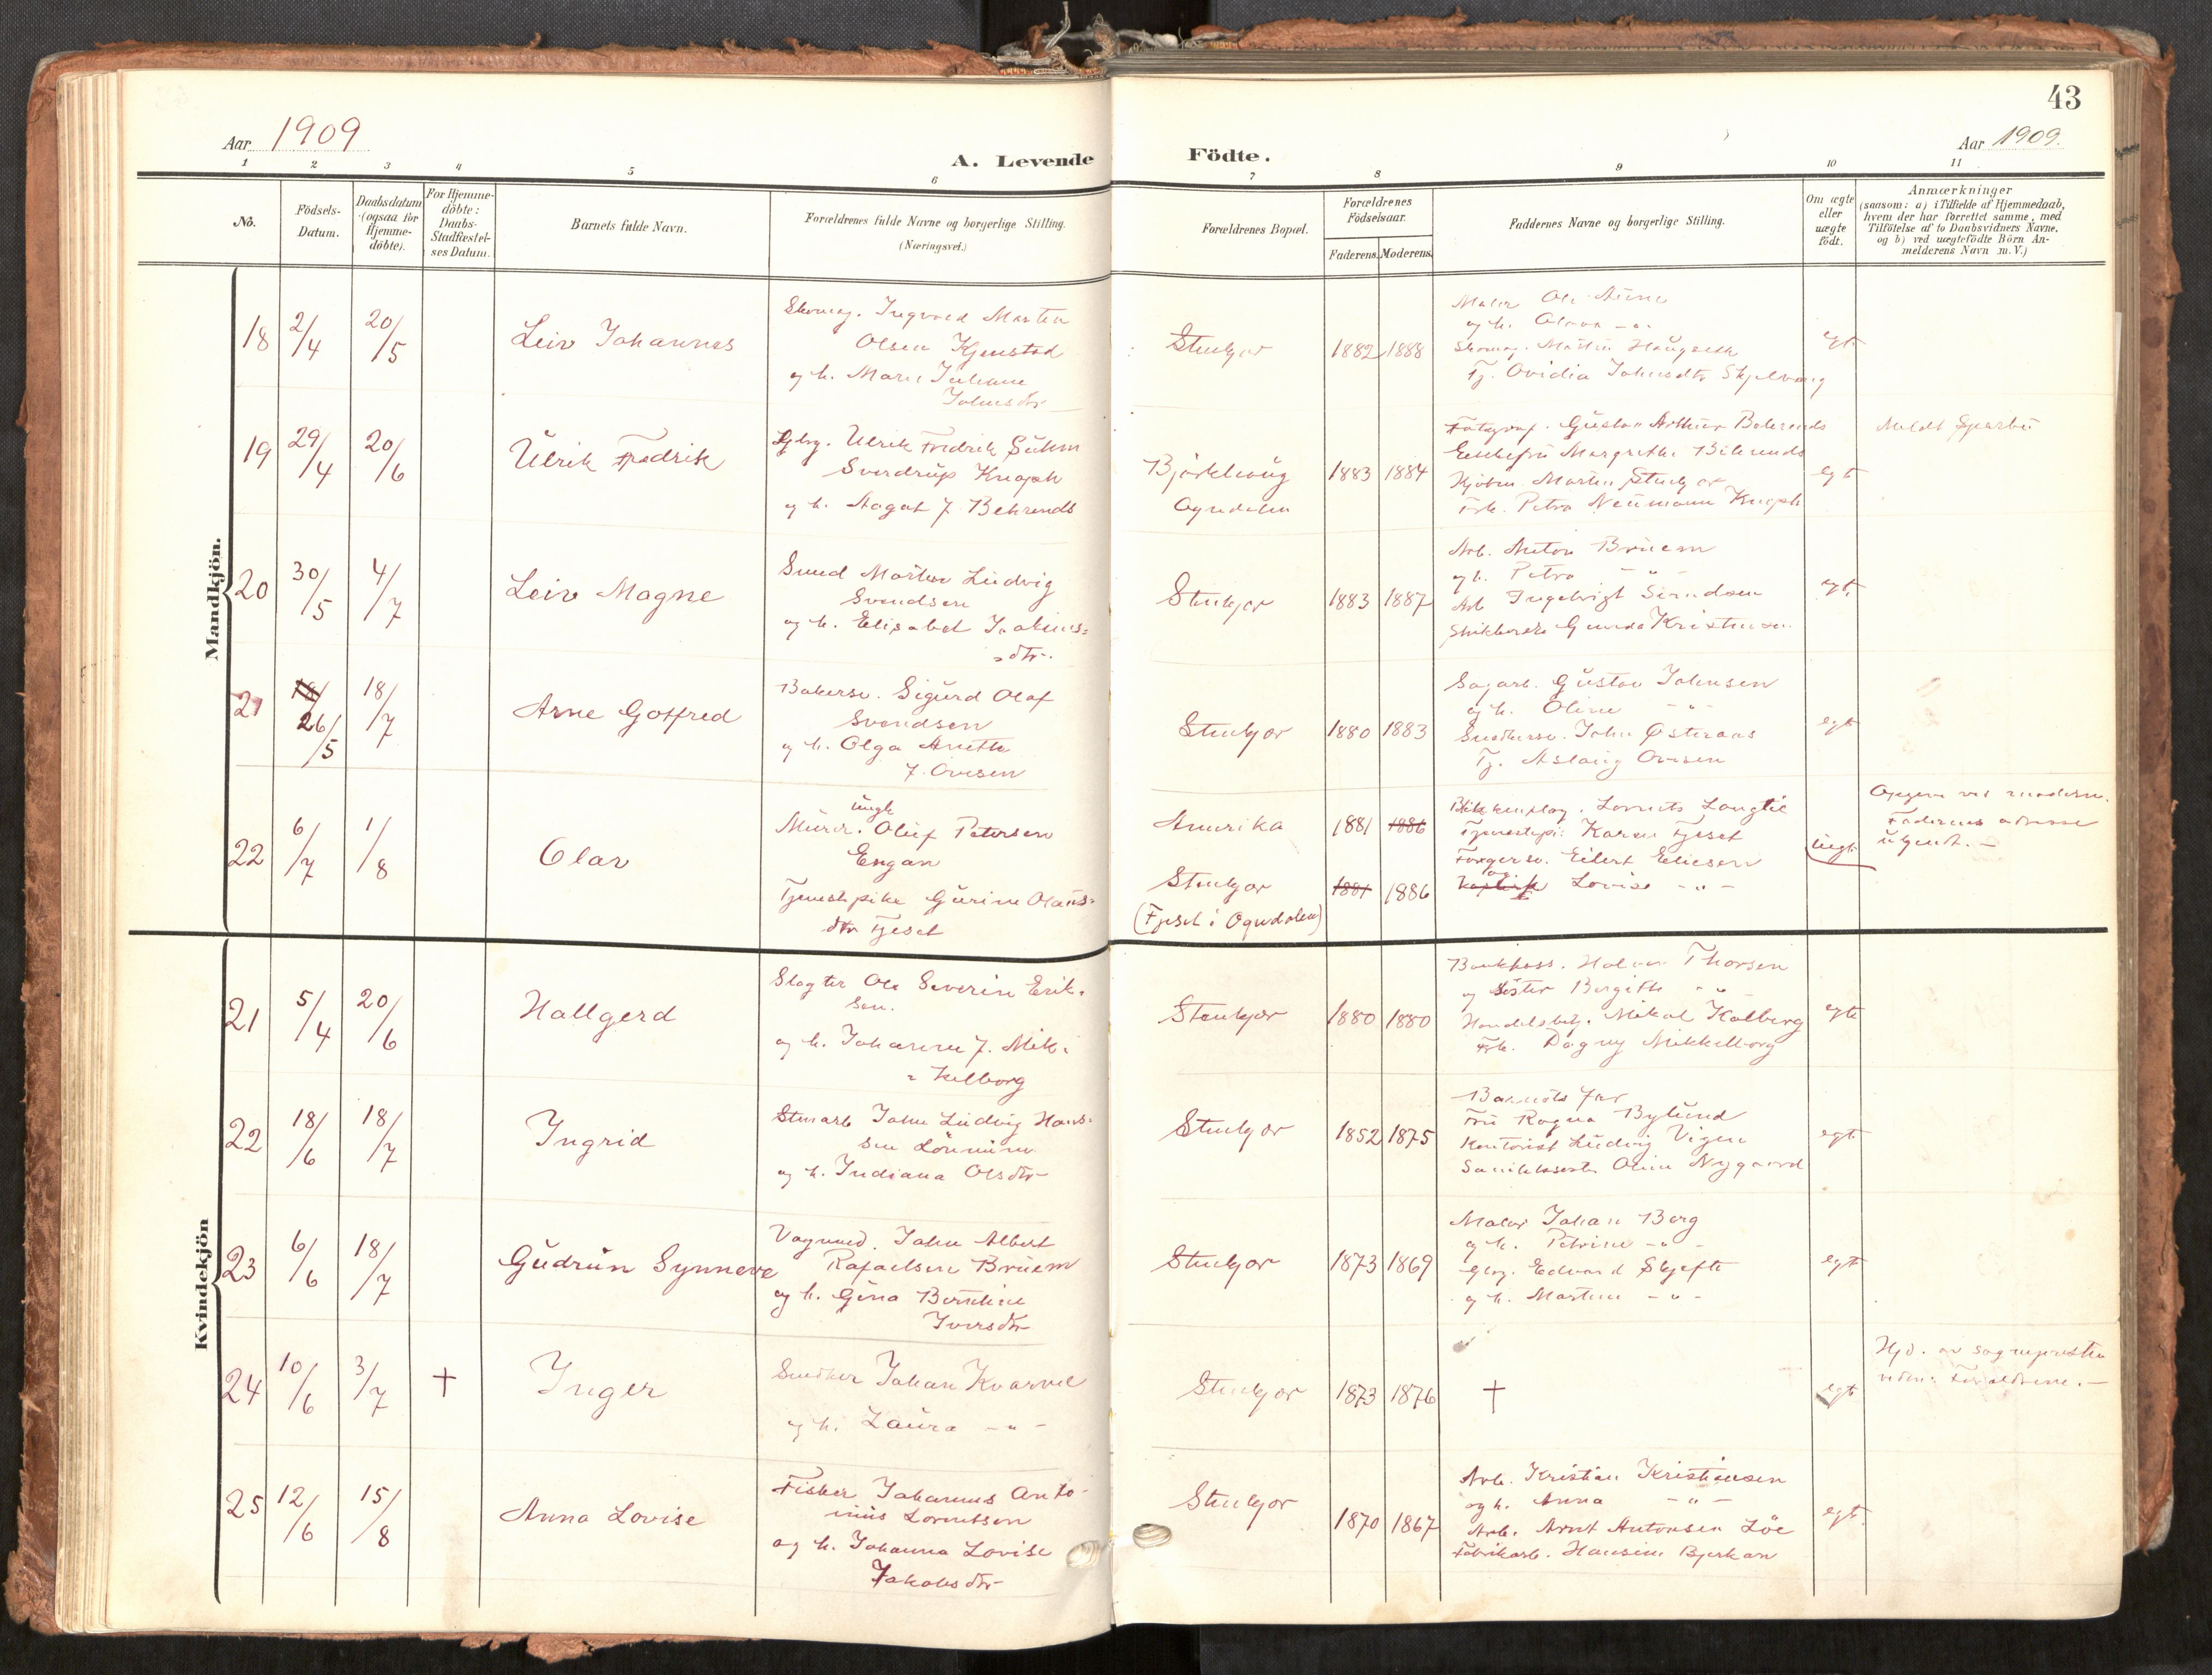 43
Aar 1909
Aar 1909.
A. Levende Födte.
1 2 3 4 5 6 7 8 9 10 11
No.
Födsels-
Datum.
Daabsdatum
(ogsaa for
Hjemme-
döbte).
For Hjemme-
döbte:
Daabs-
Stadfæstel-
ses Datum.
Barnets fulde Navn.
Forældrenes fulde Navne og borgerlige Stilling.
(Næringsvei.)
Forældrenes Bopæl.
Forældrenes
Födselsaar.
Faderens. Moderens.
Faddernes Navne og borgerlige Stilling.
Om ægte
eller
uægte
födt.
Anmærkninger
(saasom: a) i Tilfælde af Hjemmedaab,
hvem der har forrettet samme, med
Tilföielse af to Daabsvidners Navne,
og b) ved uægtefödte Börn An-
melderens Navn m. V.)
Mandkjön.
18 2/4 20/5 Leiv Johannes
Skomag. Ingvald Martin
Olsen Kjenstad
og h. Marie Juliane
Johnsdtr
Stenkjær 1882 1888
Maler Ole Aune
og h. Olava -"-
Skomag. Martin Haugseth
Tj. Ovidia Johnsdtr Skjelvaag
egt
19 29/4 20/6 Ulrik Fredrik
Gbrg. Ulrik Fredrik Suhm
Sverdrup Knoph
og h. Aagot f. Behrends
Björkhaug
Ogndalen
1883 1884
Fotograf. Gustav Arthur Behrends
Enkefru Margrethe Behrends
Kjöbm. Martin Stenkjær
Frk. Petra Neumann Knoph
egt
Meldt Sparbu
20 30/5 4/7 Leiv Magne
Smed Martin Ludvig
Svendsen
og h. Elisabet Joakims=
=dtr.
Stenkjær 1883 1887
Arb. Anton Brüem
og h. Petra -"-
Arb Ingebrigt
Gunda Kristensen
egt.
21 26/5 18/7 Arne Gotfred
Bakersv. Sigurd Olaf
Svendsen
og h. Olga Anette
f. Ovesen
Stenkjær 1880 1883
Sagarb. Gustav Johnsen
og h. Oline -"-
Snedkersv. John Østeraas
Tj. Aslaug Ovesen
egt
22 6/7 1/8 Olav
ungk
Murer. Oluf Petersen
Engan
Tjenestepike Gurine Olaus=
dtr Fjeset
Amerika 1881 1886
Stenkjær 1881 1886
(Fjeset i Ogndalen)
Lorents Langli
Tjenestepi: Karen Fjeset
Eilert Eliesen
og Lovise -"-
uegt
Opgivn ved moderen.
Faderens adresse
ukjendt. -
Kvindekjön
21 5/4 20/6 Hallgerd
Slagter Ole Severin Erik-
sen.
og h. Johanna f. Mik=
=kelborg
Stenkjær 1880 1880
Bankkass. Halvor Thorsen
og söster Bergitte -"-
Handelsbetj. Mikal Kolberg
Frk. Dagny Mikkelborg
egte
22 18/6 18/7 Ingrid
Stenarb John Ludvig Hans=
sen Lönnum
og h. Indiana Olsdtr
Stenkjær 1852 1875
Barnets far
Fru Ragna Bylund
Kontorist Ludvig Vigen
Oline Nygaard
egt.
23 6/6 18/7 Gudrun Synneve
Vognmd. John Albert
Rafaelsen Brüem
og h. Gina Berntine
Iversdtr
Stenkjær 1873 1869
Maler Johan Berg
og h. Petrine -"-
Gbrg. Edvard Skjefte
og h. Martine -"-
egt
24 10/6 3/7 + Inger
Snedker Johan Kvarvel
og h. Laura -"-
Stenkjær 1873 1876 + egt
Hjd. av sogneprestn
vidn: Forældrene. -
25 12/6 15/8 Anna Lovise
Fisker Johannes Anto-
nius Lorentsen
og h. Johanna Lovise
Jakobsdtr
Stenkjær 1870 1867
Arb. Kristian Kristiansen
og h. Anna -"-
Arb. Arnt Antonsen Löe
Fabrikarb. Hansine Bjerkan
egt.